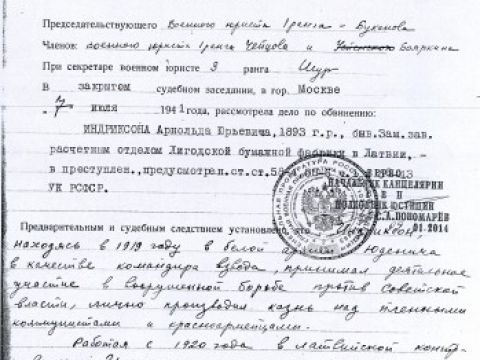 Председательствующего Военного юриста I ранга - Буканова
Членов: военного юриста I ранга Чепцова и Бояркина
При секретаре военном юристе 3 ранга Мзур
В закрытом судебном заседании, в гор. Москве
"7" июля 1941 года, рассмотрела дело по обвинению:
ИНДРИКСОНА Арнольда Юрьевича, 1893 г.р., быв. Зам. зав.
расчетным отделом Лигодской бумажной фабрики в Латвии, -
в преступлен., предусмотран. ст. ст. 58- 13
УК РСФСР.
ВЕРНО
НАЧАЛЬНИК КАНЦЕЛЯРИИ
ПОЛКОВНИК ЮСТИЦИИ
С.А. ПОНОМАРЁВ
01.2014
Предварительным и судебным следствием установлено, что Индриксон,
находясь в 1919 году в белой армии Юденича
в качестве командира взвода, принимал деятельное
участие в вооруженной борьбе против Советской
власти, лично производил казнь над пленными
коммунистами и красноармейцами.
Работая с 1920 года в латвийской